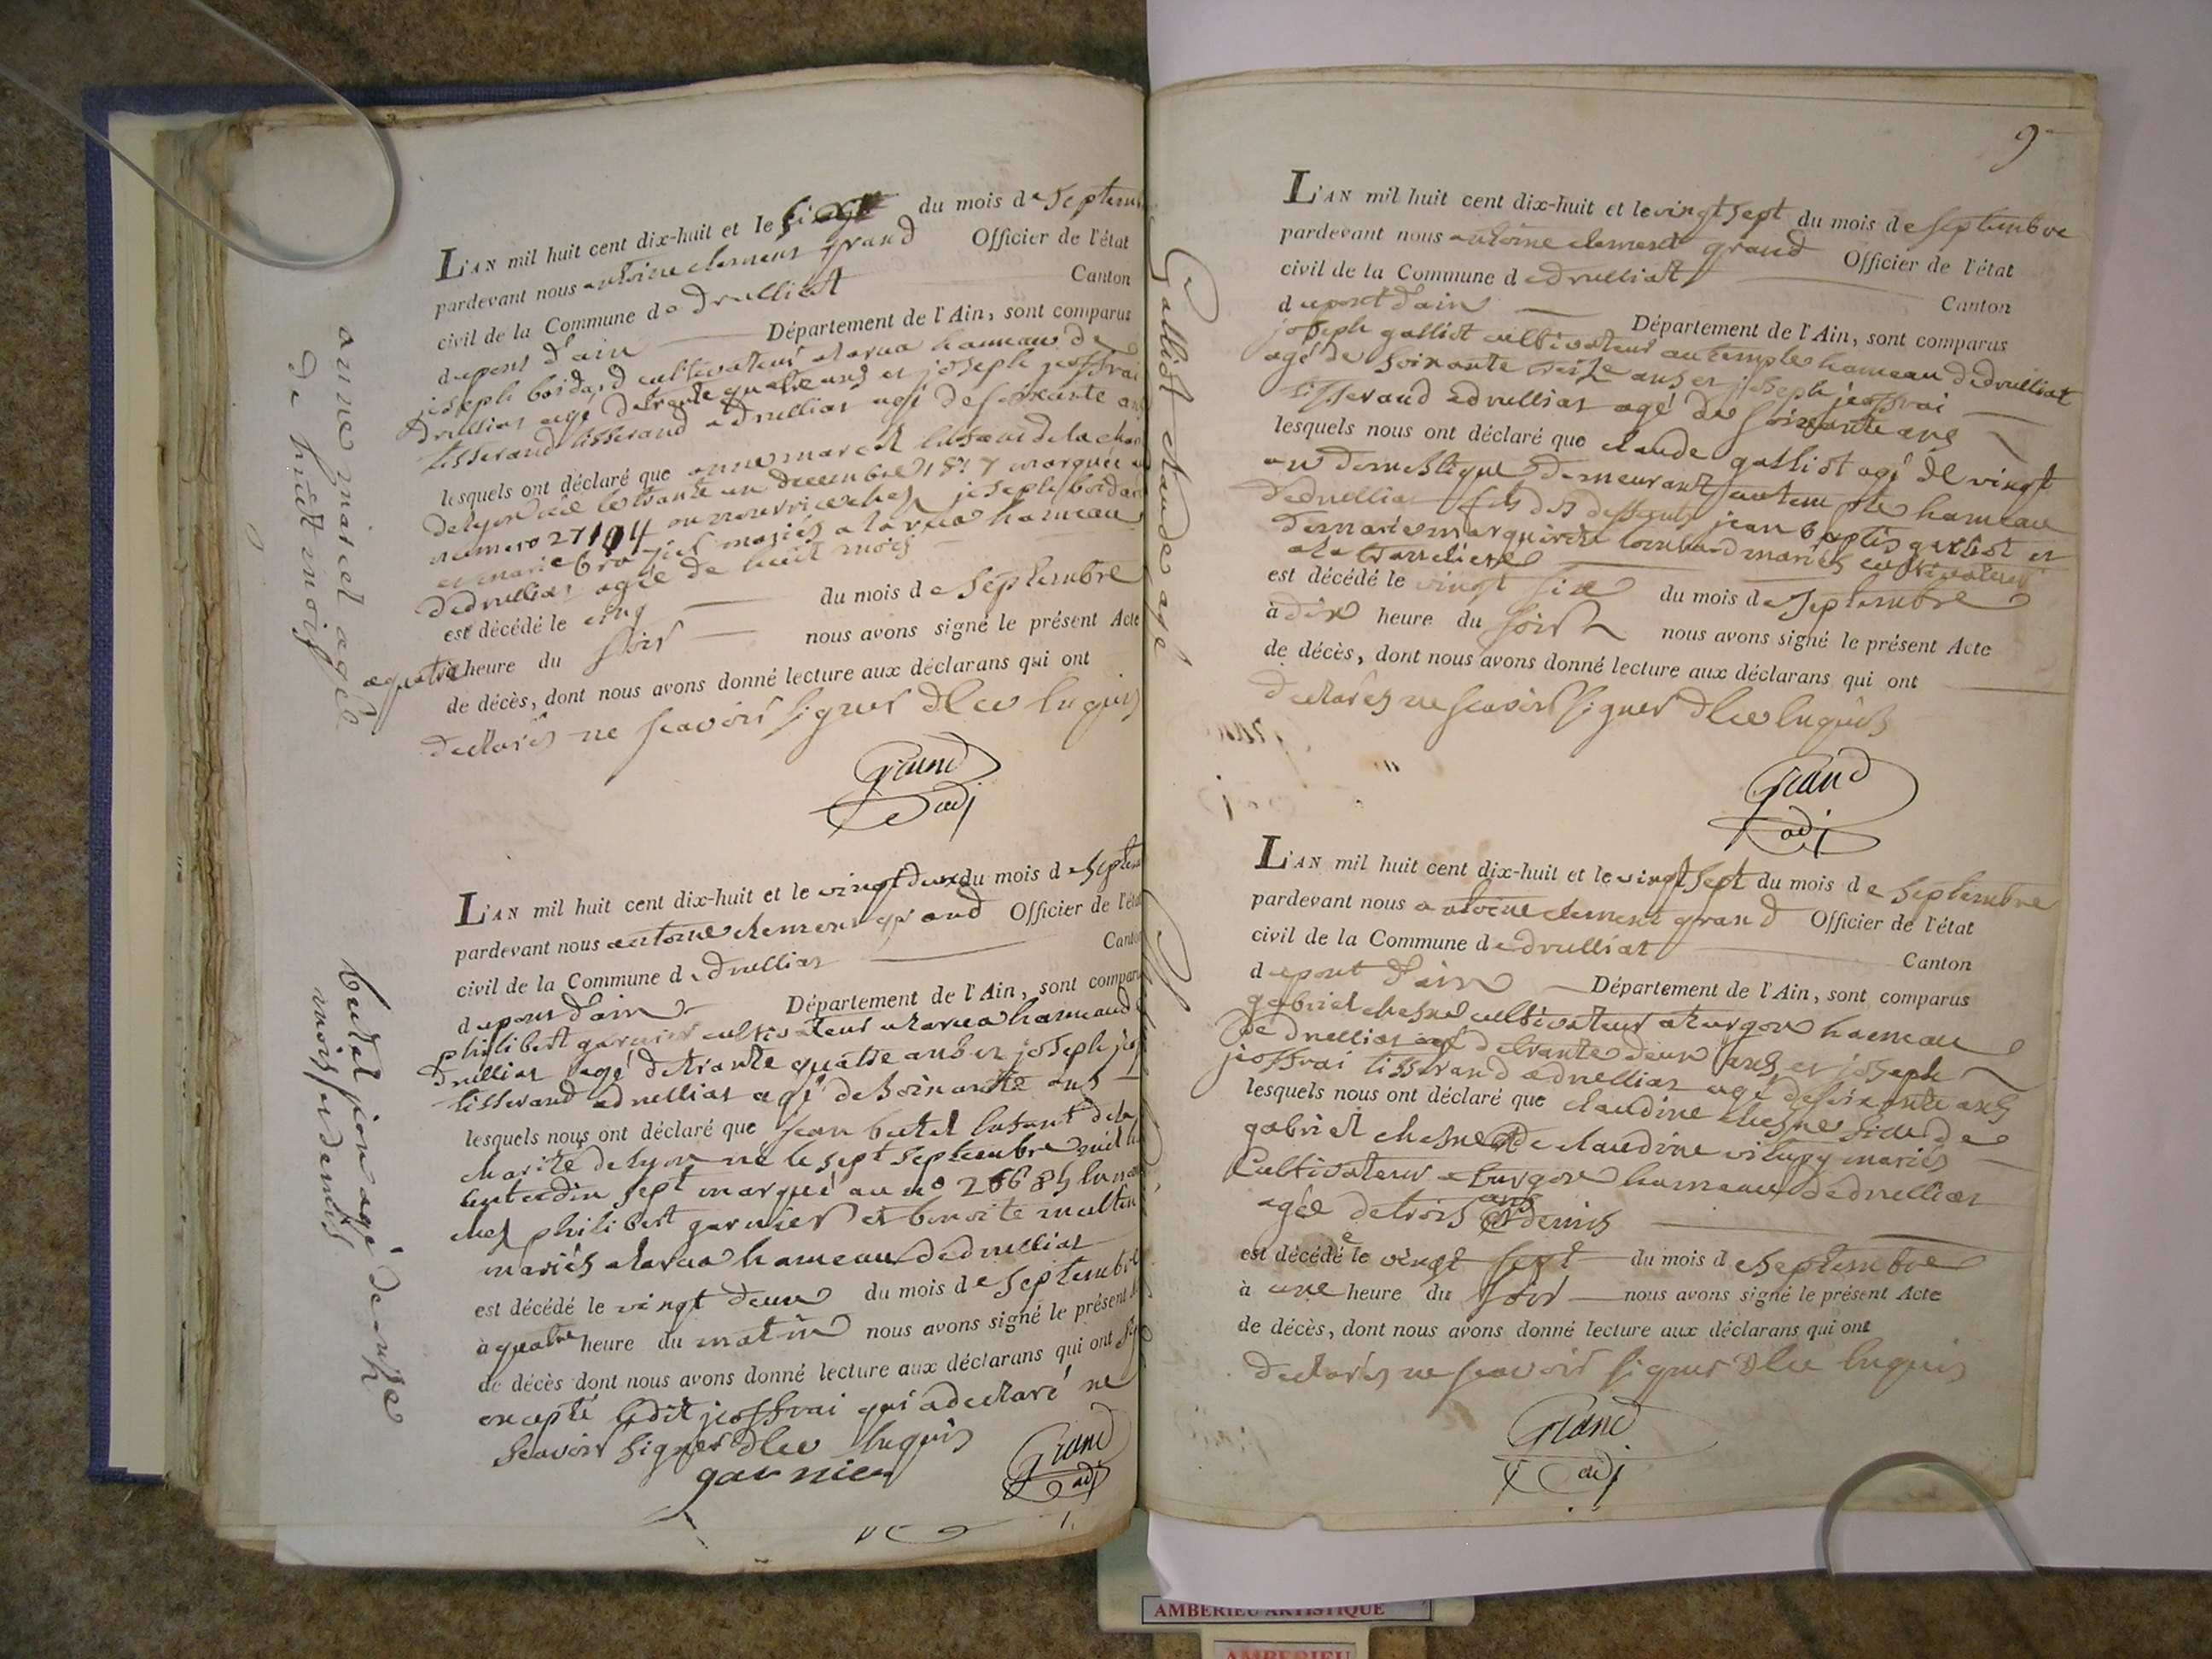 anne marcel agée
de huit mois
L'AN mil huit cent dix-huit et le du mois de Septem
pardevant nous antoine clement grand Officier de l'état
civil de la Commune de Druilliat Canton
du pont d'ain Département de l'Ain, sont comparus
joseph boidard cultivateur a hameau de
Druilliat agé de trante quatre ans et joseph jeoffrai
tisserand tisserand a druilliat agé de soixante an
lesquels ont déclaré que anne marcel de la char
de lyon née le trante un decembre 1817 marquée
numero 27104 en nourrice chez joseph boidar
et marie mariés a hameau
de druilliat agée de huit mois
est décédé le cinq du mois de Septembre
a quatre heure du soir nous avons signé le présent Acte
de décès, dont nous avons donné lecture aux déclarans qui ont
declarés ne scavoir signer de ce enquis
Grand
adj
butel jean agé de onze
mois et demis
L'AN mil huit cent dix-huit et le vingt deux du mois de Septem
pardevant nous antoine clement grand Officier de l'état
civil de la Commune de druilliat Canton
du pont d'ain Département de l'Ain, sont comparu
philibert garnier cultivateur a hameau d
druilliat agé de trante quatre ans et joseph jeo
tisserand a druilliat agé de soixante ans
lesquels nous ont déclaré que jean butel enfant de la
charité de lyon né le sept septembre mil h
cent dix sept marqué au no en n
chez philibert garnier et benoite
mariés a hameau de druilliat
est décédé le vingt deux du mois de Septembre
à quatre heure du matin nous avons signé le présent
de décès dont nous avons donné lecture aux déclarans qui ont
excepté ledit jeoffrai qui a declaré ne
scavoir signer de ce enquis
garnier
Grand
adj
9
Galliot claude agé
L'AN mil huit cent dix-huit et le vingt sept du mois de septembre
pardevant nous antoine clement grand Officier de l'état
civil de la Commune de druilliat Canton
du pont d'ain Département de l'Ain, sont comparus
joseph galliot cultivateur au temple hameau de druilliat
agé de soixante seize ans et joseph jeoffrai
tisserand a druilliat agé de soixante ans
lesquels nous ont déclaré que claude galliot agé de vingt
an domestique demeurant au temple hameau
de druilliat fils des deffunts jean baptis galliot et
de marie marguerite lombard mariés cultivateur
a la
est décédé le vingt six du mois de Septembre
à dix heure du soir nous avons signé le présent Acte
de décès, dont nous avons donné lecture aux déclarans qui ont
declarés ne scavoir signer de ce enquis
Grand
adj
L'AN mil huit cent dix-huit et le vingt sept du mois de Septembre
pardevant nous antoine clement grand Officier de l'état
civil de la Commune de druilliat Canton
du pont d'ain Département de l'Ain, sont comparus
gabriel chesne cultivateur a turgon hameau
de druilliat agé de trante deux ans et joseph
jeoffrai tisserand a druilliat agé de soixante ans
lesquels nous ont déclaré que claudine chesne fille de
gabriel chesne et de claudine mariés
cultivateur a turgon hameau de druilliat
agée de trois ans et demis
est décédée le vingt sept du mois de Septembre
à une heure du soir nous avons signé le présent Acte
de décès, dont nous avons donné lecture aux déclarans qui ont
declarés ne scavoir signer de ce enquis
Grand
adj
AMBERIEU ARTISTIQUE
AMBERIEU